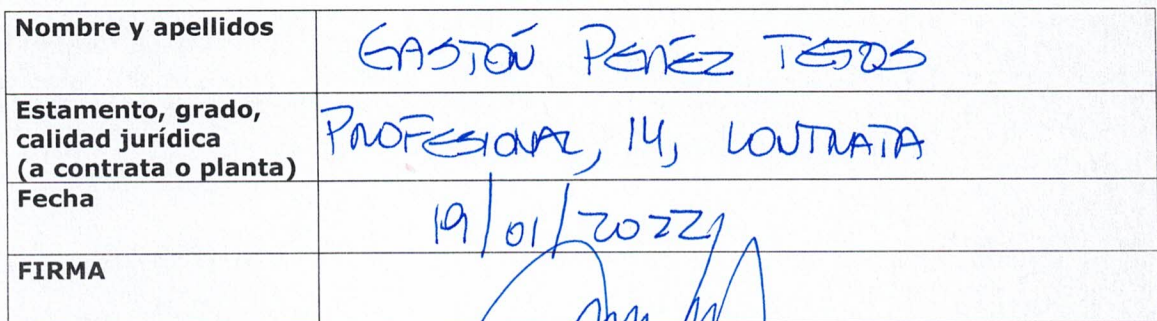 Nombre y apellidos
GASTÓN PEREZ TEJOS
Estamento, grado,
calidad jurídica
(a contrata o planta)
PROFESIONAL, 14, CONTRATA
Fecha
19/01/2022
FIRMA